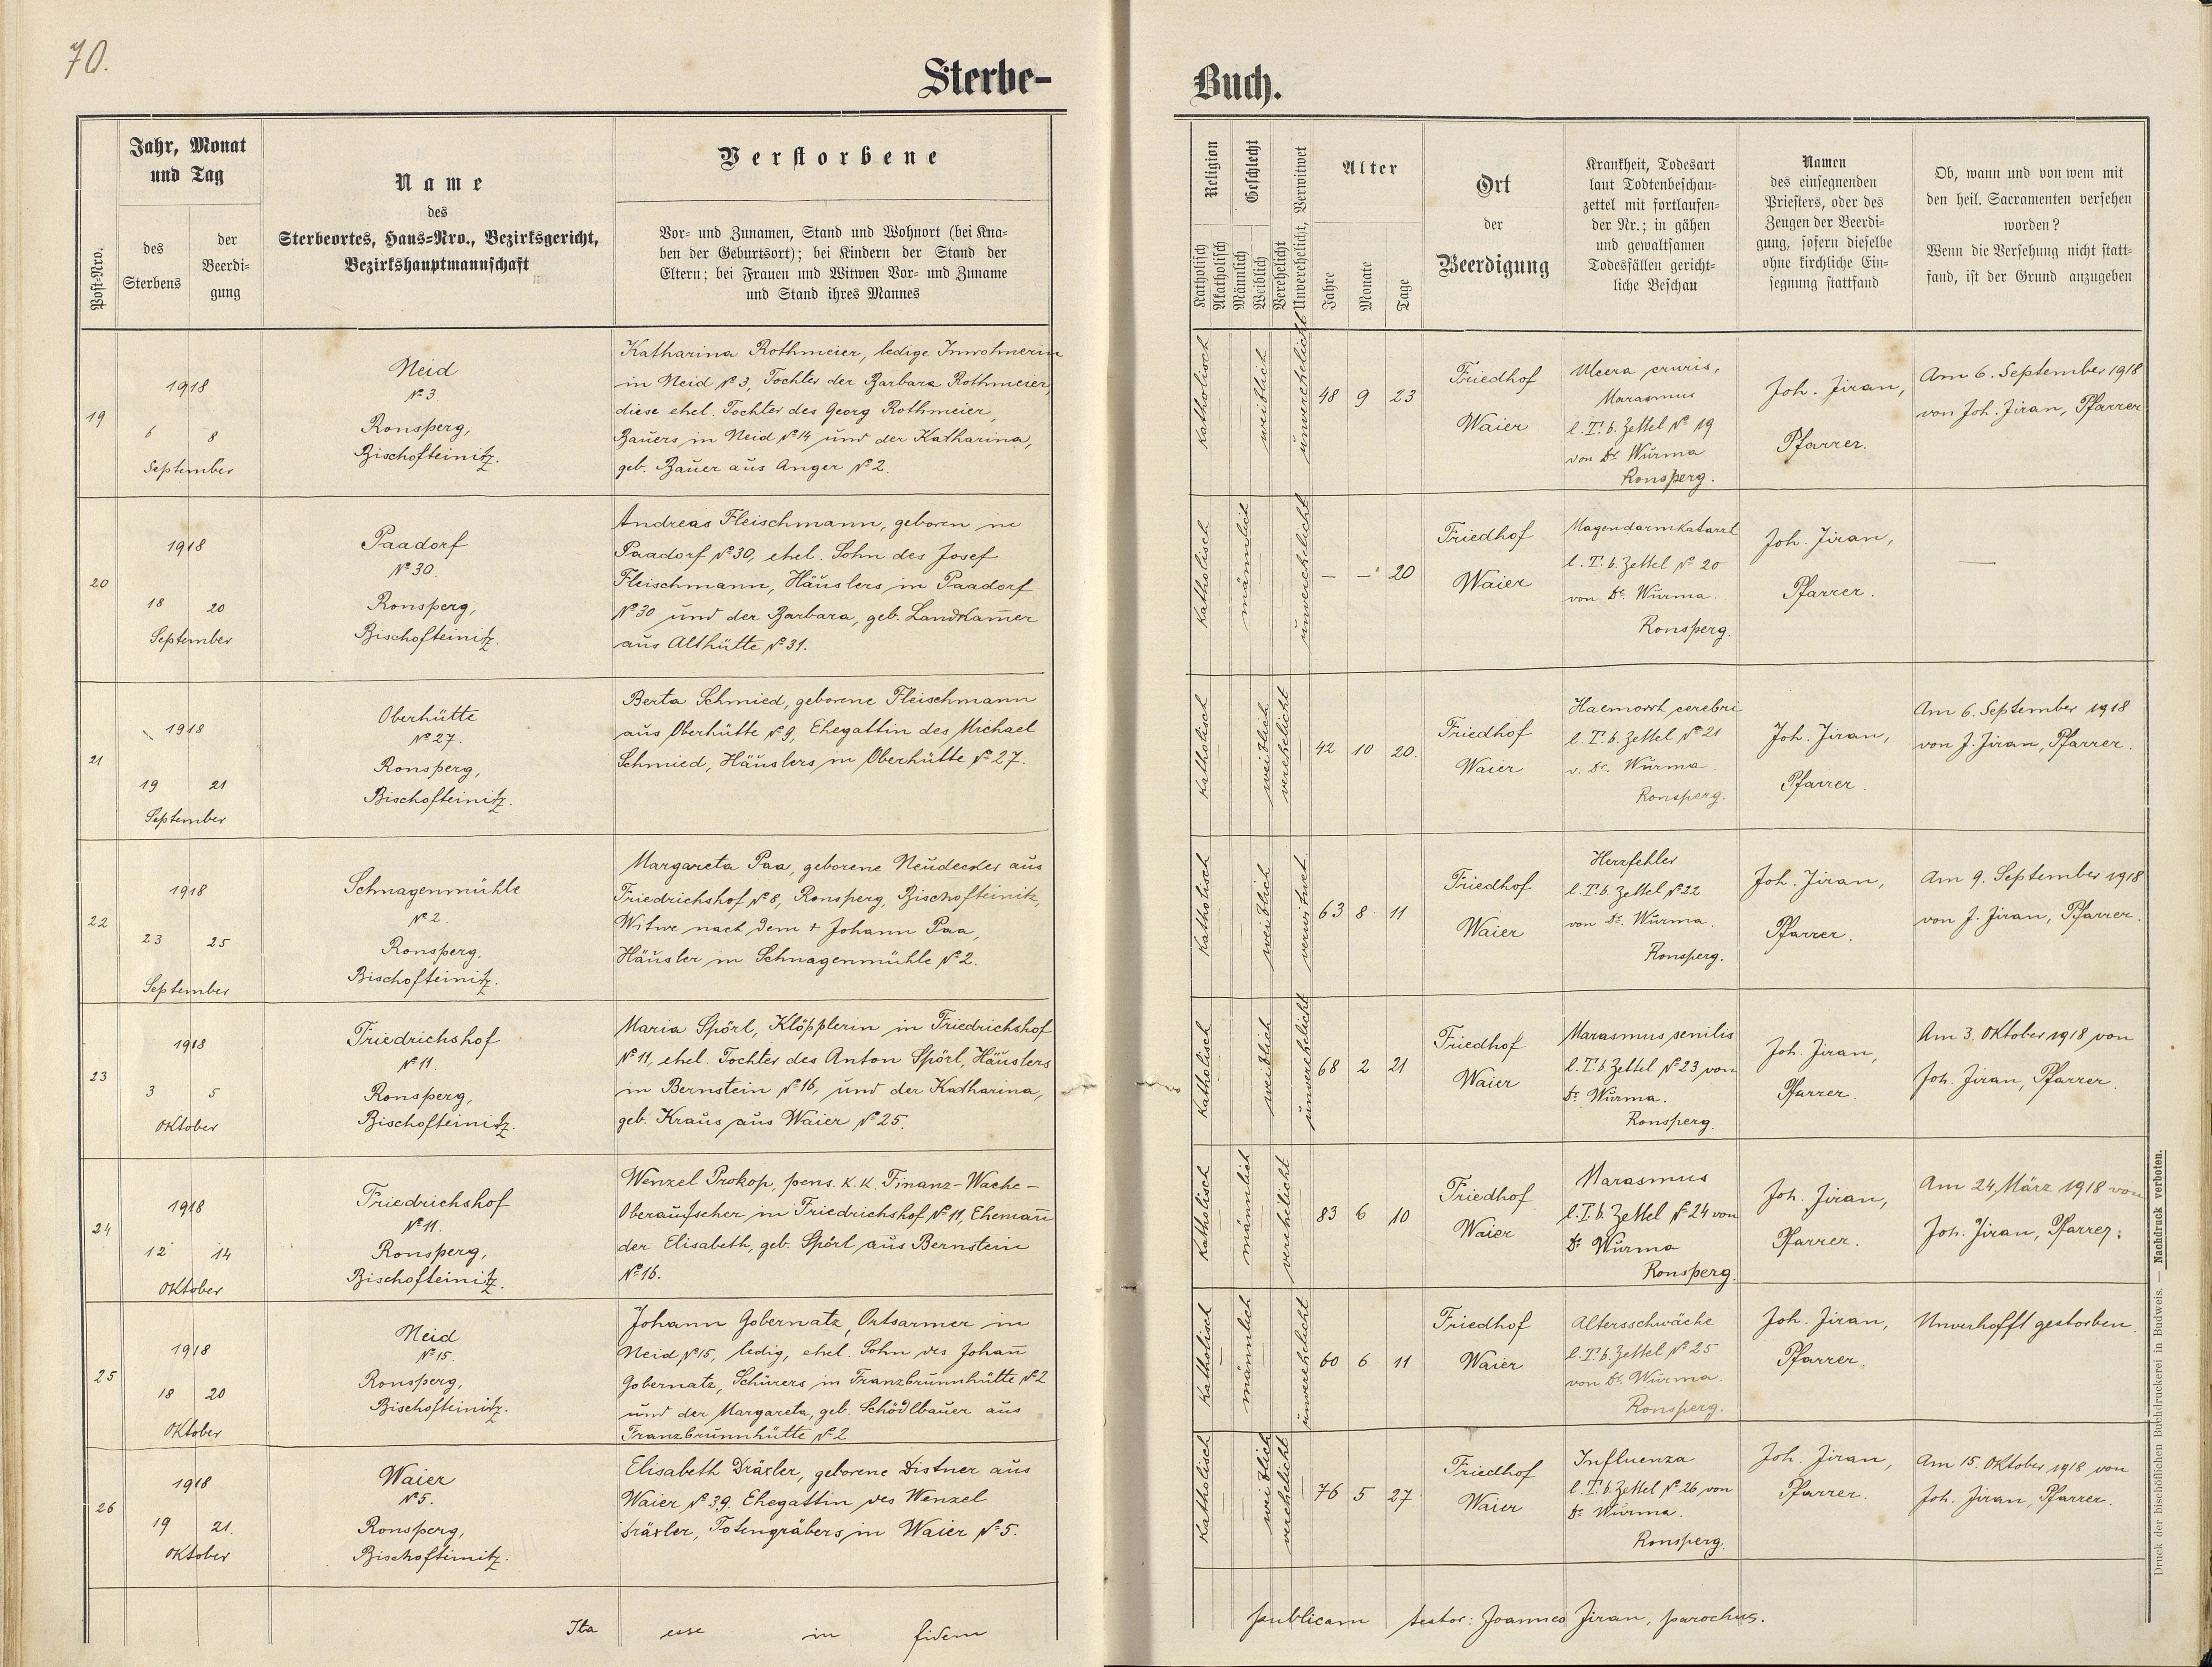 70.
Sterbe-
Buch.
Post-Nro.
Jahr, Monat
und Tag
des
Sterbens
der
Beerdi-
gung
Name
des
Sterbeortes, Haus-Nro., Bezirksgericht,
Bezirkshauptmannschaft
Verstorbene
Vor- und Zunamen, Stand und Wohnort (bei Kna-
ben der Geburtsort); bei Kindern der Stand der
Eltern; bei Frauen und Witwen Vor- und Zuname
und Stand ihres Mannes
Religion
Katholisch
Akatholisch
Geschlecht
Männlich
Weiblich
Verehelicht
Unverehelicht, Verwitwet
Alter
Jahre
Monate
Tage
Ort
der
Beerdigung
Krankheit, Todesart
laut Todtenbeschau-
zettel mit fortlaufen-
der Nr.; in gähen
und gewaltsamen
Todesfällen gericht-
liche Beschau
Namen
des einsegnenden
Priesters, oder des
Zeugen der Beerdi-
gung, sofern dieselbe
ohne kirchliche Ein-
segnung stattfand
Ob, wann und von wem mit
den heil. Sacramenten versehen
worden?
Wenn die Versehung nicht statt-
fand, ist der Grund anzugeben
19
1918
6 8
September
Neid
No 3
Ronsperg,
Bischofteinitz.
Katharina Rothmeier, ledige Inwohnerin
in Neid No 3, Tochter der Barbara Rothmeier,
diese ehel. Tochter des Georg Rothmeier,
Bauers in Neid No 14 und der Katharina,
geb. Bauer aus Anger No 2.
Katholisch
weiblich
unverehelicht
48 9 23
Friedhof
Waier
Ulcera cruris,
Marasmus
l. T. b. Zettel No 19
von Dr. Wurma
Ronsperg.
Joh. Jiran,
Pfarrer.
Am 6. September 1918
von Joh. Jiran, Pfarrer
20
1918
18 20
September
Paadorf
No 30.
Ronsperg,
Bischofteinitz.
Andreas Fleischmann, geboren in
Paadorf No 30, ehel. Sohn des Josef
Fleischmann, Häuslers in Paadorf
No 30 und der Barbara, geb. Landkam̄er
aus Althütte No 31.
Katholisch
männlich
unverehelicht
— — 20
Friedhof
Waier
Magendarmkatarrh
l. T. b. Zettel No 20
von Dr. Wurma.
Ronsperg.
Joh. Jiran,
Pfarrer.
—
21
1918
19 21
September
Oberhütte
No 27.
Ronsperg,
Bischofteinitz.
Berta Schmied, geborene Fleischmann
aus Oberhütte No 9, Ehegattin des Michael
Schmied, Häuslers in Oberhütte No 27.
Katholisch
weiblich
verehelicht
42 10 20.
Friedhof
Waier
Haemorrh cerebri
l. T. b. Zettel No 21
v. Dr. Wurma.
Ronsperg.
Joh. Jiran,
Pfarrer.
Am 6. September 1918
von J. Jiran, Pfarrer.
22
1918
23 25
September
Schnagenmühle
No 2.
Ronsperg,
Bischofteinitz.
Margareta Paa, geborene Neudecker aus
Friedrichshof No 8, Ronsperg, Bischofteinitz,
Witwe nach dem + Johann Paa,
Häusler in Schnagenmühle No 2.
Katholisch
weiblich
verwitwet.
63 8 11
Friedhof
Waier
Herzfehler
l. T. b. Zettel No 22
von Dr. Wurma.
Ronsperg.
Joh. Jiran,
Pfarrer.
Am 9. September 1918
von J. Jiran, Pfarrer.
23
1918
3 5
Oktober
Friedrichshof
No 11.
Ronsperg,
Bischofteinitz.
Maria Spörl, Klöpplerin in Friedrichshof
No 11, ehel. Tochter des Anton Spörl, Häuslers
in Bernstein No 16, und der Katharina,
geb. Kraus aus Waier No 25.
Katholisch
weiblich
unverehelicht
68 2 21
Friedhof
Waier
Marasmus senilis
l. T. b. Zettel No 23 von
Dr. Wurma.
Ronsperg.
Joh. Jiran,
Pfarrer.
Am 3. Oktober 1918 von
Joh. Jiran, Pfarrer.
24
1918
12 14
Oktober
Friedrichshof
No 11.
Ronsperg,
Bischofteinitz.
Wenzel Prokop, pens. k. k. Finanz-Wache-
Oberaufseher in Friedrichshof No 11, Eheman̄
der Elisabeth, geb. Spörl aus Bernstein
No 16.
Katholisch
männlich
verehelicht
83 6 10
Friedhof
Waier
Marasmus
l. T. b. Zettel No 24 von
Dr. Wurma
Ronsperg.
Joh. Jiran,
Pfarrer.
Am 24. März 1918 von
Joh. Jiran, Pfarrer.
25
1918
18 20
Oktober
Neid
No 15.
Ronsperg,
Bischofteinitz.
Johann Gobernatz, Ortsarmer in
Neid No 15, ledig, ehel. Sohn des Johan̄
Gobernatz, Schürers in Franzbrunnhütte No 2
und der Margareta, geb. Schödlbauer aus
Franzbrunnhütte No 2
Katholisch
männlich
unverehelicht
60 6 11
Friedhof
Waier
Altersschwäche
l. T. b. Zettel No 25
von Dr. Wurma.
Ronsperg.
Joh. Jiran,
Pfarrer.
Unverhofft gestorben.
26
1918
19 21.
Oktober
Waier
No 5.
Ronsperg,
Bischofteinitz.
Elisabeth Dräxler, geborene Distner aus
Waier No 39. Ehegattin des Wenzel
Dräxler, Totengräbers in Waier No 5.
Katholisch
weiblich
verehelicht
76 5 27
Friedhof
Waier
Influenza
l. T. b. Zettel No 26 von
Dr. Wurma.
Ronsperg.
Joh. Jiran,
Pfarrer.
Am 15. Oktober 1918 von
Joh. Jiran, Pfarrer.
Ita esse in fidem publicam testor: Joannes Jiran, parochus.
Druck der bischöflichen Buchdruckerei in Budweis. — Nachdruck verboten.